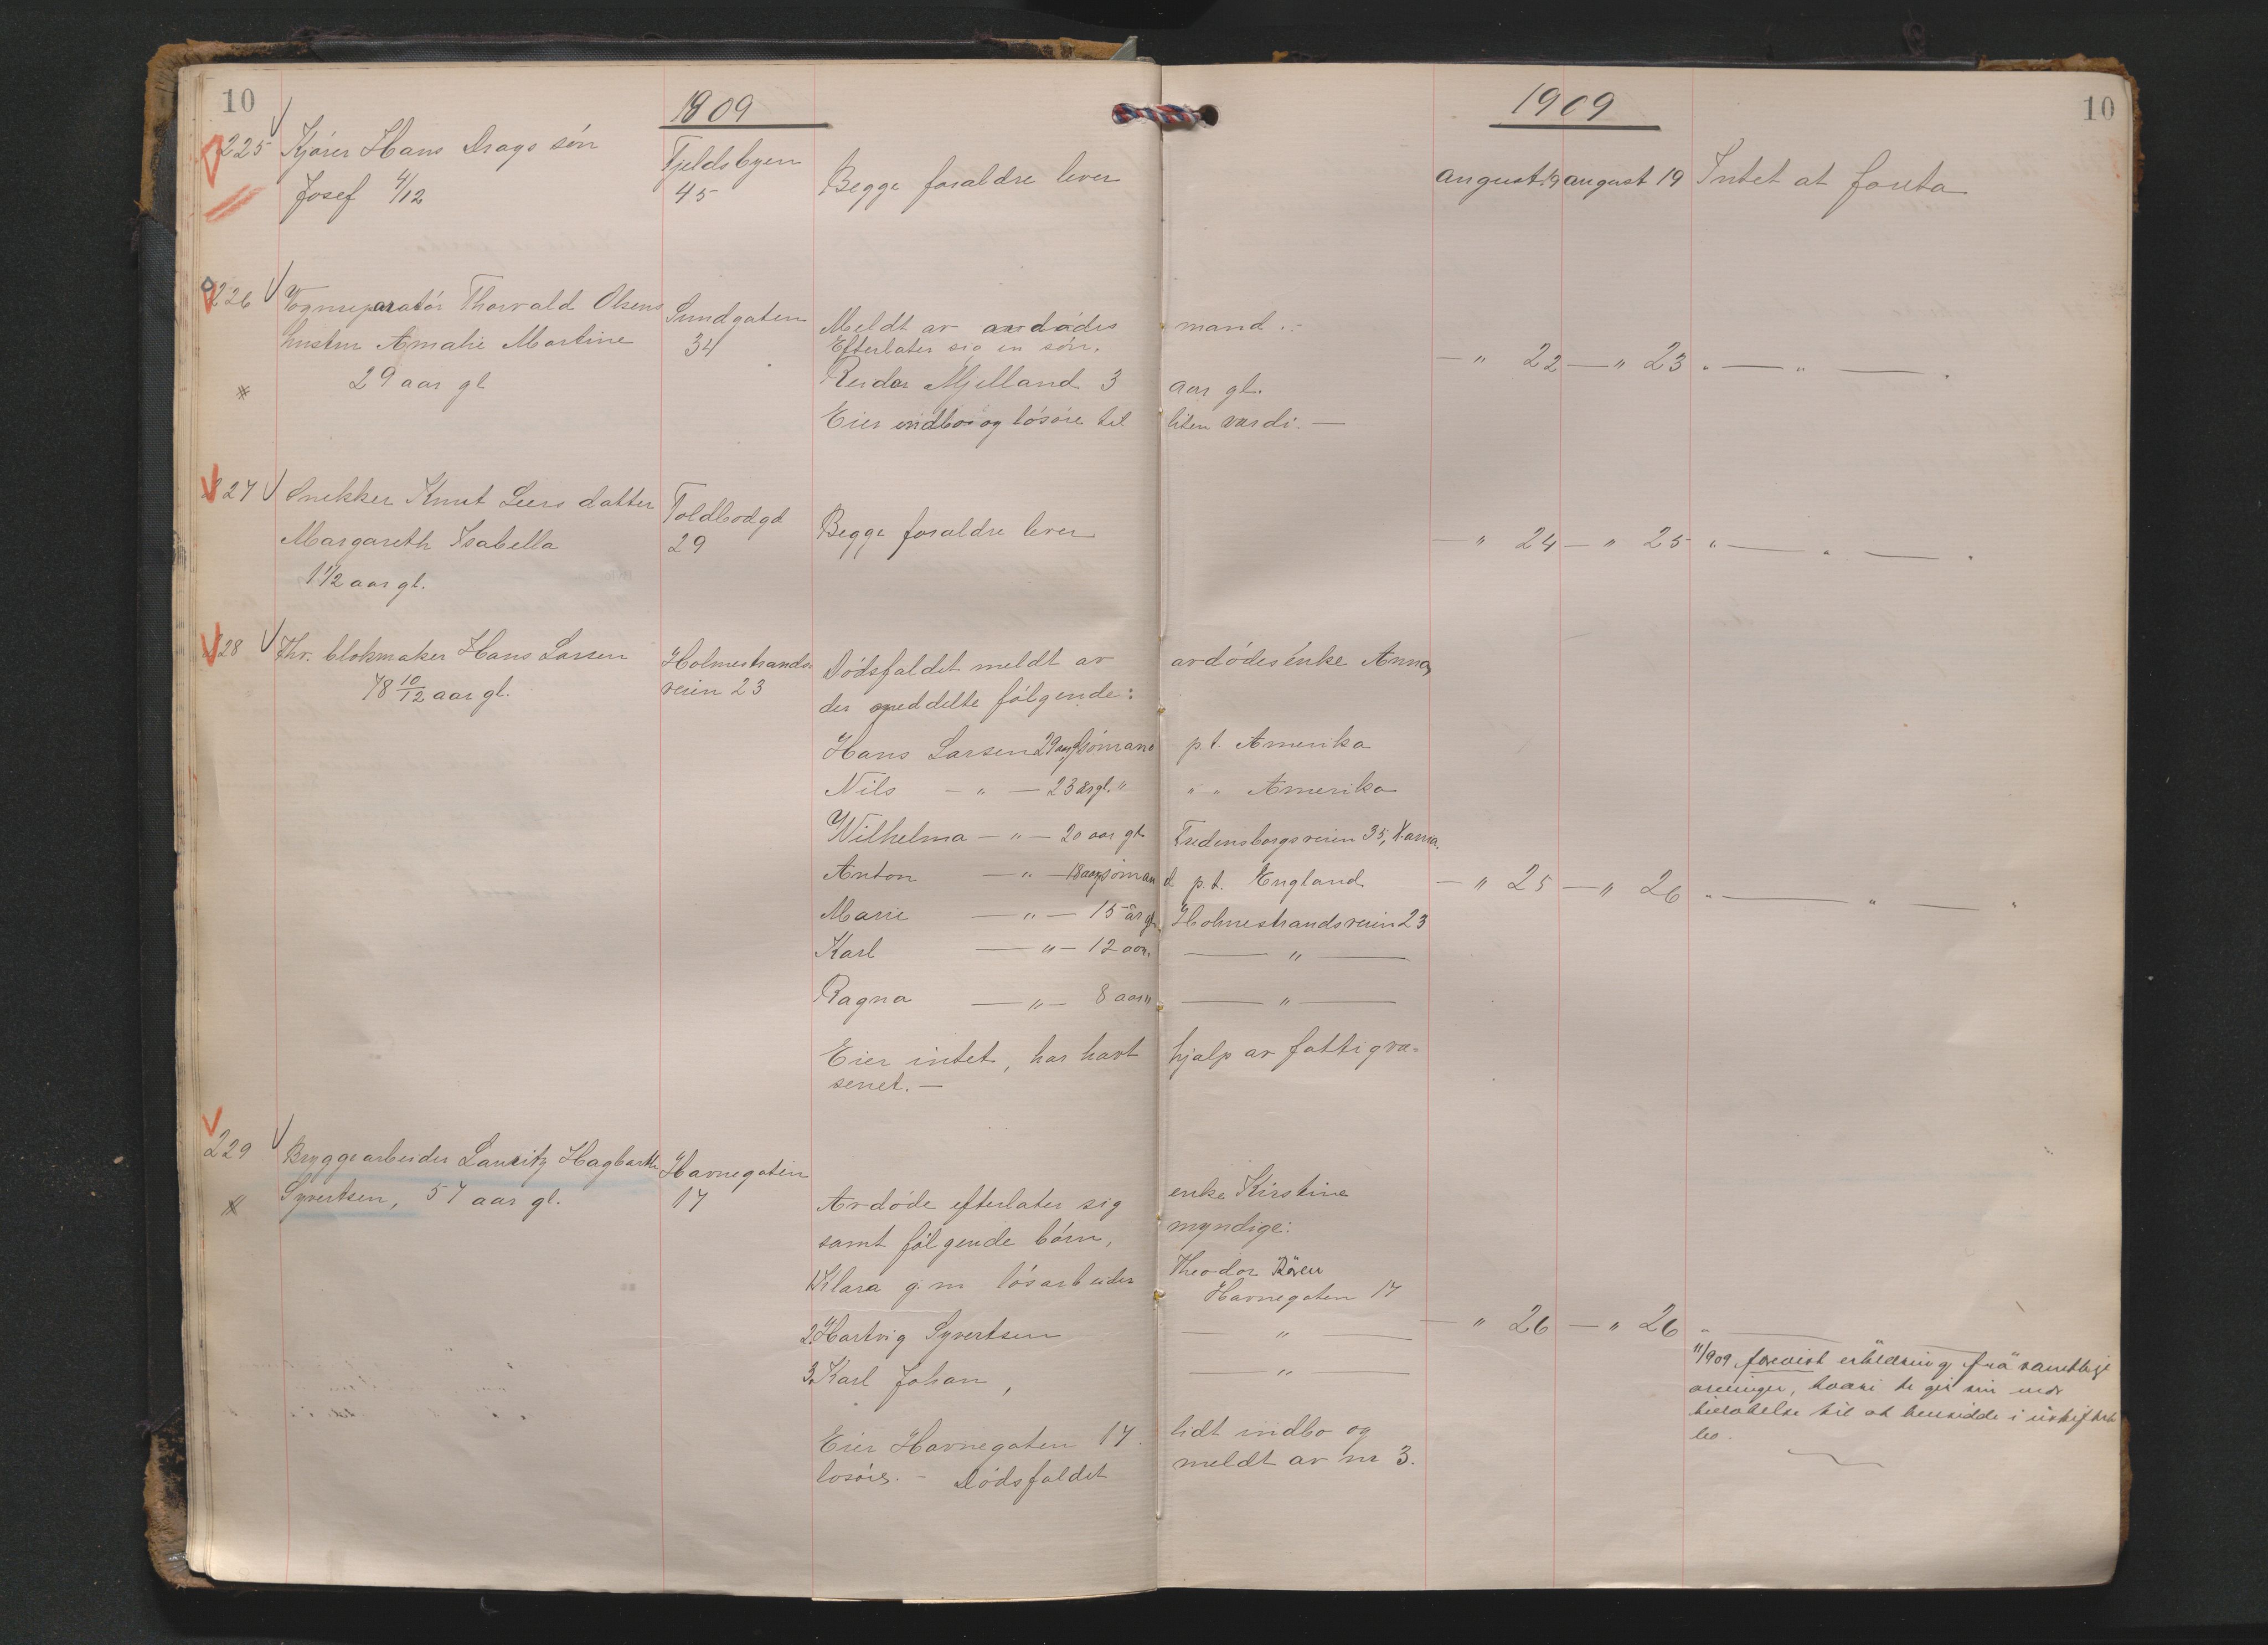 10
1909
1909
10
225 Kjører Hans Drags søn Fjeldsbyen
Josef 4/12 45 Begge foraldre lever august 19 august 19 Intet at foreta
226 Vognreparatør Thorvald Olsens Sundgaten
hustru Amalie Martine 34 Meldt av avdødes mand.-
Efterlater sig en søn.
29 aar gl Reidar Mjelland 3 aar gl. — " 22 — " 23 " — " —
Eier indbo og løsøre til liten værdi. —
227 Snekker Knut Leers datter Toldbodgd
Margareth Isabella 29 Begge foraldre lever — " 24 — " 25 " — " —
1 1/2 aar gl.
228 Fhv. blokmaker Hans Larsen Holmestrands-
78 10/12 aar gl. veien 23 Dødsfaldet meldt av avdødes enke Anna,
der meddelte følgende:
Hans Larsen 29 aar, sømand p.t. Amerika
Nils — " — 23 år gl. " " " Amerika
Wilhelma — " — 20 aar gl Fredensborgsveien 35, X.ania.
Anton — " — 18 aar, sømand p.t. England — " 25 — " 26 " — " — "
Marie — " — 15 år gl. Holmestrandsveien 23
Karl — " — 12 aar. — " —
Ragna — " — 8 aar " — " —
Eier intet, har havt hjalp av fattigvæ-
senet. —
229 Bryggearbeider Lauritz Hagbarth Havnegaten
Syvertsen, 57 aar gl. 17 Avdøde efterlater sig enke Kirstine
samt følgende børn, myndige:
1. Klara g.m. løsarbeider Theodor
Havnegaten 17
2. Hartvig Syvertsen — " — — " 26 — " 26 "
3. Karl Johan, — " —
11/909 forevist erklæring frå samtlige
arvinger, hvori de gir sin
tilladelse til at hensidde i uskiftet
bo.
Eier Havnegaten 17. lidt indbo og
løsøre. - Dødsfaldet meldt av nr 3.